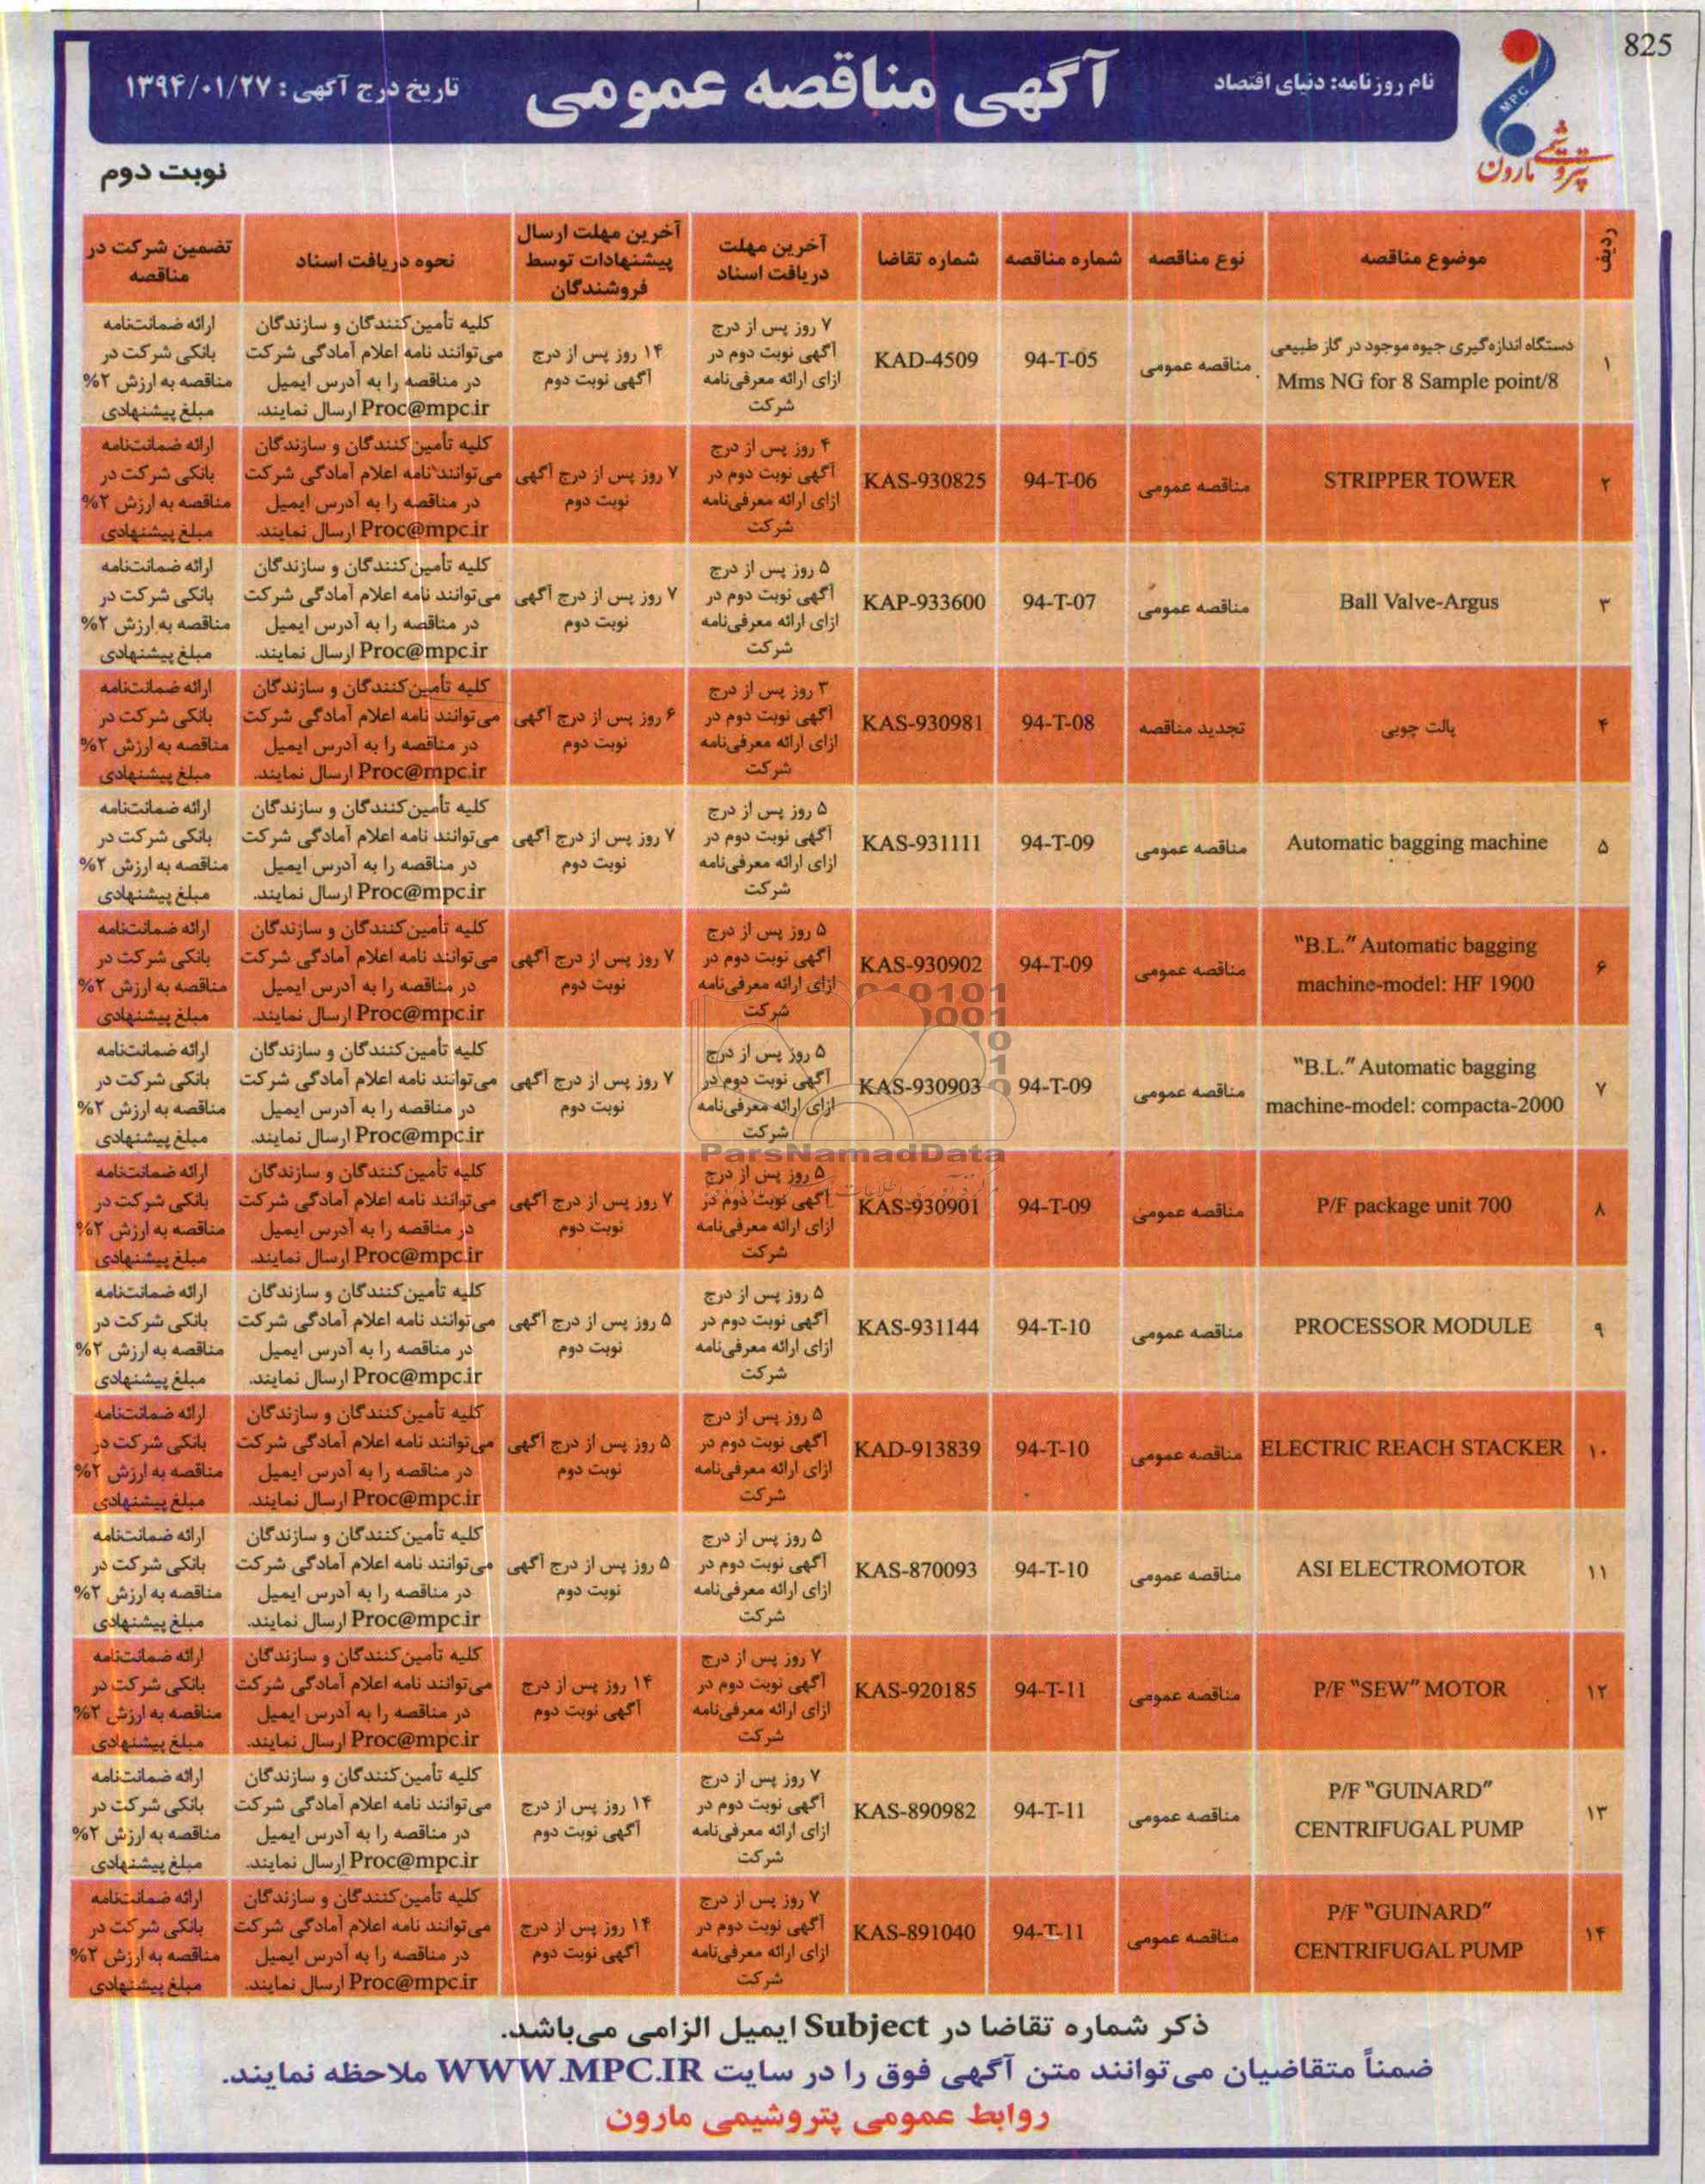 825
MPC
پتروشیمی مارون
نام روزنامه: دنیای اقتصاد
آگهی مناقصه عمومی
تاریخ درج آگهی: ۱۳۹۴/۰۱/۲۷
نوبت دوم
ردیف | موضوع مناقصه | نوع مناقصه | شماره مناقصه | شماره تقاضا | آخرین مهلت دریافت اسناد | آخرین مهلت ارسال پیشنهادات توسط فروشندگان | نحوه دریافت اسناد | تضمین شرکت در مناقصه
۱ | دستگاه اندازه‌گیری جیوه موجود در گاز طبیعی Mms NG for 8 Sample point/8 | مناقصه عمومی | 94-T-05 | KAD-4509 | ۷ روز پس از درج آگهی نوبت دوم در ازای ارائه معرفی‌نامه شرکت | ۱۴ روز پس از درج آگهی نوبت دوم | کلیه تأمین‌کنندگان و سازندگان می‌توانند نامه اعلام آمادگی شرکت در مناقصه را به آدرس ایمیل Proc@mpc.ir ارسال نمایند. | ارائه ضمانت‌نامه بانکی شرکت در مناقصه به ارزش ۲% مبلغ پیشنهادی
۲ | STRIPPER TOWER | مناقصه عمومی | 94-T-06 | KAS-930825 | ۴ روز پس از درج آگهی نوبت دوم در ازای ارائه معرفی‌نامه شرکت | ۷ روز پس از درج آگهی نوبت دوم | کلیه تأمین‌کنندگان و سازندگان می‌توانند نامه اعلام آمادگی شرکت در مناقصه را به آدرس ایمیل Proc@mpc.ir ارسال نمایند. | ارائه ضمانت‌نامه بانکی شرکت در مناقصه به ارزش ۲% مبلغ پیشنهادی
۳ | Ball Valve-Argus | مناقصه عمومی | 94-T-07 | KAP-933600 | ۵ روز پس از درج آگهی نوبت دوم در ازای ارائه معرفی‌نامه شرکت | ۷ روز پس از درج آگهی نوبت دوم | کلیه تأمین‌کنندگان و سازندگان می‌توانند نامه اعلام آمادگی شرکت در مناقصه را به آدرس ایمیل Proc@mpc.ir ارسال نمایند. | ارائه ضمانت‌نامه بانکی شرکت در مناقصه به ارزش ۲% مبلغ پیشنهادی
۴ | پالت چوبی | تجدید مناقصه | 94-T-08 | KAS-930981 | ۳ روز پس از درج آگهی نوبت دوم در ازای ارائه معرفی‌نامه شرکت | ۶ روز پس از درج آگهی نوبت دوم | کلیه تأمین‌کنندگان و سازندگان می‌توانند نامه اعلام آمادگی شرکت در مناقصه را به آدرس ایمیل Proc@mpc.ir ارسال نمایند. | ارائه ضمانت‌نامه بانکی شرکت در مناقصه به ارزش ۲% مبلغ پیشنهادی
۵ | Automatic bagging machine | مناقصه عمومی | 94-T-09 | KAS-931111 | ۵ روز پس از درج آگهی نوبت دوم در ازای ارائه معرفی‌نامه شرکت | ۷ روز پس از درج آگهی نوبت دوم | کلیه تأمین‌کنندگان و سازندگان می‌توانند نامه اعلام آمادگی شرکت در مناقصه را به آدرس ایمیل Proc@mpc.ir ارسال نمایند. | ارائه ضمانت‌نامه بانکی شرکت در مناقصه به ارزش ۲% مبلغ پیشنهادی
۶ | "B.L." Automatic bagging machine-model: HF 1900 | مناقصه عمومی | 94-T-09 | KAS-930902 | ۵ روز پس از درج آگهی نوبت دوم در ازای ارائه معرفی‌نامه شرکت | ۷ روز پس از درج آگهی نوبت دوم | کلیه تأمین‌کنندگان و سازندگان می‌توانند نامه اعلام آمادگی شرکت در مناقصه را به آدرس ایمیل Proc@mpc.ir ارسال نمایند. | ارائه ضمانت‌نامه بانکی شرکت در مناقصه به ارزش ۲% مبلغ پیشنهادی
۷ | "B.L." Automatic bagging machine-model: compacta-2000 | مناقصه عمومی | 94-T-09 | KAS-930903 | ۵ روز پس از درج آگهی نوبت دوم در ازای ارائه معرفی‌نامه شرکت | ۷ روز پس از درج آگهی نوبت دوم | کلیه تأمین‌کنندگان و سازندگان می‌توانند نامه اعلام آمادگی شرکت در مناقصه را به آدرس ایمیل Proc@mpc.ir ارسال نمایند. | ارائه ضمانت‌نامه بانکی شرکت در مناقصه به ارزش ۲% مبلغ پیشنهادی
ParsNamadData
۸ | P/F package unit 700 | مناقصه عمومی | 94-T-09 | KAS-930901 | ۵ روز پس از درج آگهی نوبت دوم در ازای ارائه معرفی‌نامه شرکت | ۷ روز پس از درج آگهی نوبت دوم | کلیه تأمین‌کنندگان و سازندگان می‌توانند نامه اعلام آمادگی شرکت در مناقصه را به آدرس ایمیل Proc@mpc.ir ارسال نمایند. | ارائه ضمانت‌نامه بانکی شرکت در مناقصه به ارزش ۲% مبلغ پیشنهادی
۹ | PROCESSOR MODULE | مناقصه عمومی | 94-T-10 | KAS-931144 | ۵ روز پس از درج آگهی نوبت دوم در ازای ارائه معرفی‌نامه شرکت | ۵ روز پس از درج آگهی نوبت دوم | کلیه تأمین‌کنندگان و سازندگان می‌توانند نامه اعلام آمادگی شرکت در مناقصه را به آدرس ایمیل Proc@mpc.ir ارسال نمایند. | ارائه ضمانت‌نامه بانکی شرکت در مناقصه به ارزش ۲% مبلغ پیشنهادی
۱۰ | ELECTRIC REACH STACKER | مناقصه عمومی | 94-T-10 | KAD-913839 | ۵ روز پس از درج آگهی نوبت دوم در ازای ارائه معرفی‌نامه شرکت | ۵ روز پس از درج آگهی نوبت دوم | کلیه تأمین‌کنندگان و سازندگان می‌توانند نامه اعلام آمادگی شرکت در مناقصه را به آدرس ایمیل Proc@mpc.ir ارسال نمایند. | ارائه ضمانت‌نامه بانکی شرکت در مناقصه به ارزش ۲% مبلغ پیشنهادی
۱۱ | ASI ELECTROMOTOR | مناقصه عمومی | 94-T-10 | KAS-870093 | ۵ روز پس از درج آگهی نوبت دوم در ازای ارائه معرفی‌نامه شرکت | ۵ روز پس از درج آگهی نوبت دوم | کلیه تأمین‌کنندگان و سازندگان می‌توانند نامه اعلام آمادگی شرکت در مناقصه را به آدرس ایمیل Proc@mpc.ir ارسال نمایند. | ارائه ضمانت‌نامه بانکی شرکت در مناقصه به ارزش ۲% مبلغ پیشنهادی
۱۲ | P/F "SEW" MOTOR | مناقصه عمومی | 94-T-11 | KAS-920185 | ۷ روز پس از درج آگهی نوبت دوم در ازای ارائه معرفی‌نامه شرکت | ۱۴ روز پس از درج آگهی نوبت دوم | کلیه تأمین‌کنندگان و سازندگان می‌توانند نامه اعلام آمادگی شرکت در مناقصه را به آدرس ایمیل Proc@mpc.ir ارسال نمایند. | ارائه ضمانت‌نامه بانکی شرکت در مناقصه به ارزش ۲% مبلغ پیشنهادی
۱۳ | P/F "GUINARD" CENTRIFUGAL PUMP | مناقصه عمومی | 94-T-11 | KAS-890982 | ۷ روز پس از درج آگهی نوبت دوم در ازای ارائه معرفی‌نامه شرکت | ۱۴ روز پس از درج آگهی نوبت دوم | کلیه تأمین‌کنندگان و سازندگان می‌توانند نامه اعلام آمادگی شرکت در مناقصه را به آدرس ایمیل Proc@mpc.ir ارسال نمایند. | ارائه ضمانت‌نامه بانکی شرکت در مناقصه به ارزش ۲% مبلغ پیشنهادی
۱۴ | P/F "GUINARD" CENTRIFUGAL PUMP | مناقصه عمومی | 94-T-11 | KAS-891040 | ۷ روز پس از درج آگهی نوبت دوم در ازای ارائه معرفی‌نامه شرکت | ۱۴ روز پس از درج آگهی نوبت دوم | کلیه تأمین‌کنندگان و سازندگان می‌توانند نامه اعلام آمادگی شرکت در مناقصه را به آدرس ایمیل Proc@mpc.ir ارسال نمایند. | ارائه ضمانت‌نامه بانکی شرکت در مناقصه به ارزش ۲% مبلغ پیشنهادی
ذکر شماره تقاضا در Subject ایمیل الزامی می‌باشد.
ضمناً متقاضیان می‌توانند متن آگهی فوق را در سایت WWW.MPC.IR ملاحظه نمایند.
روابط عمومی پتروشیمی مارون